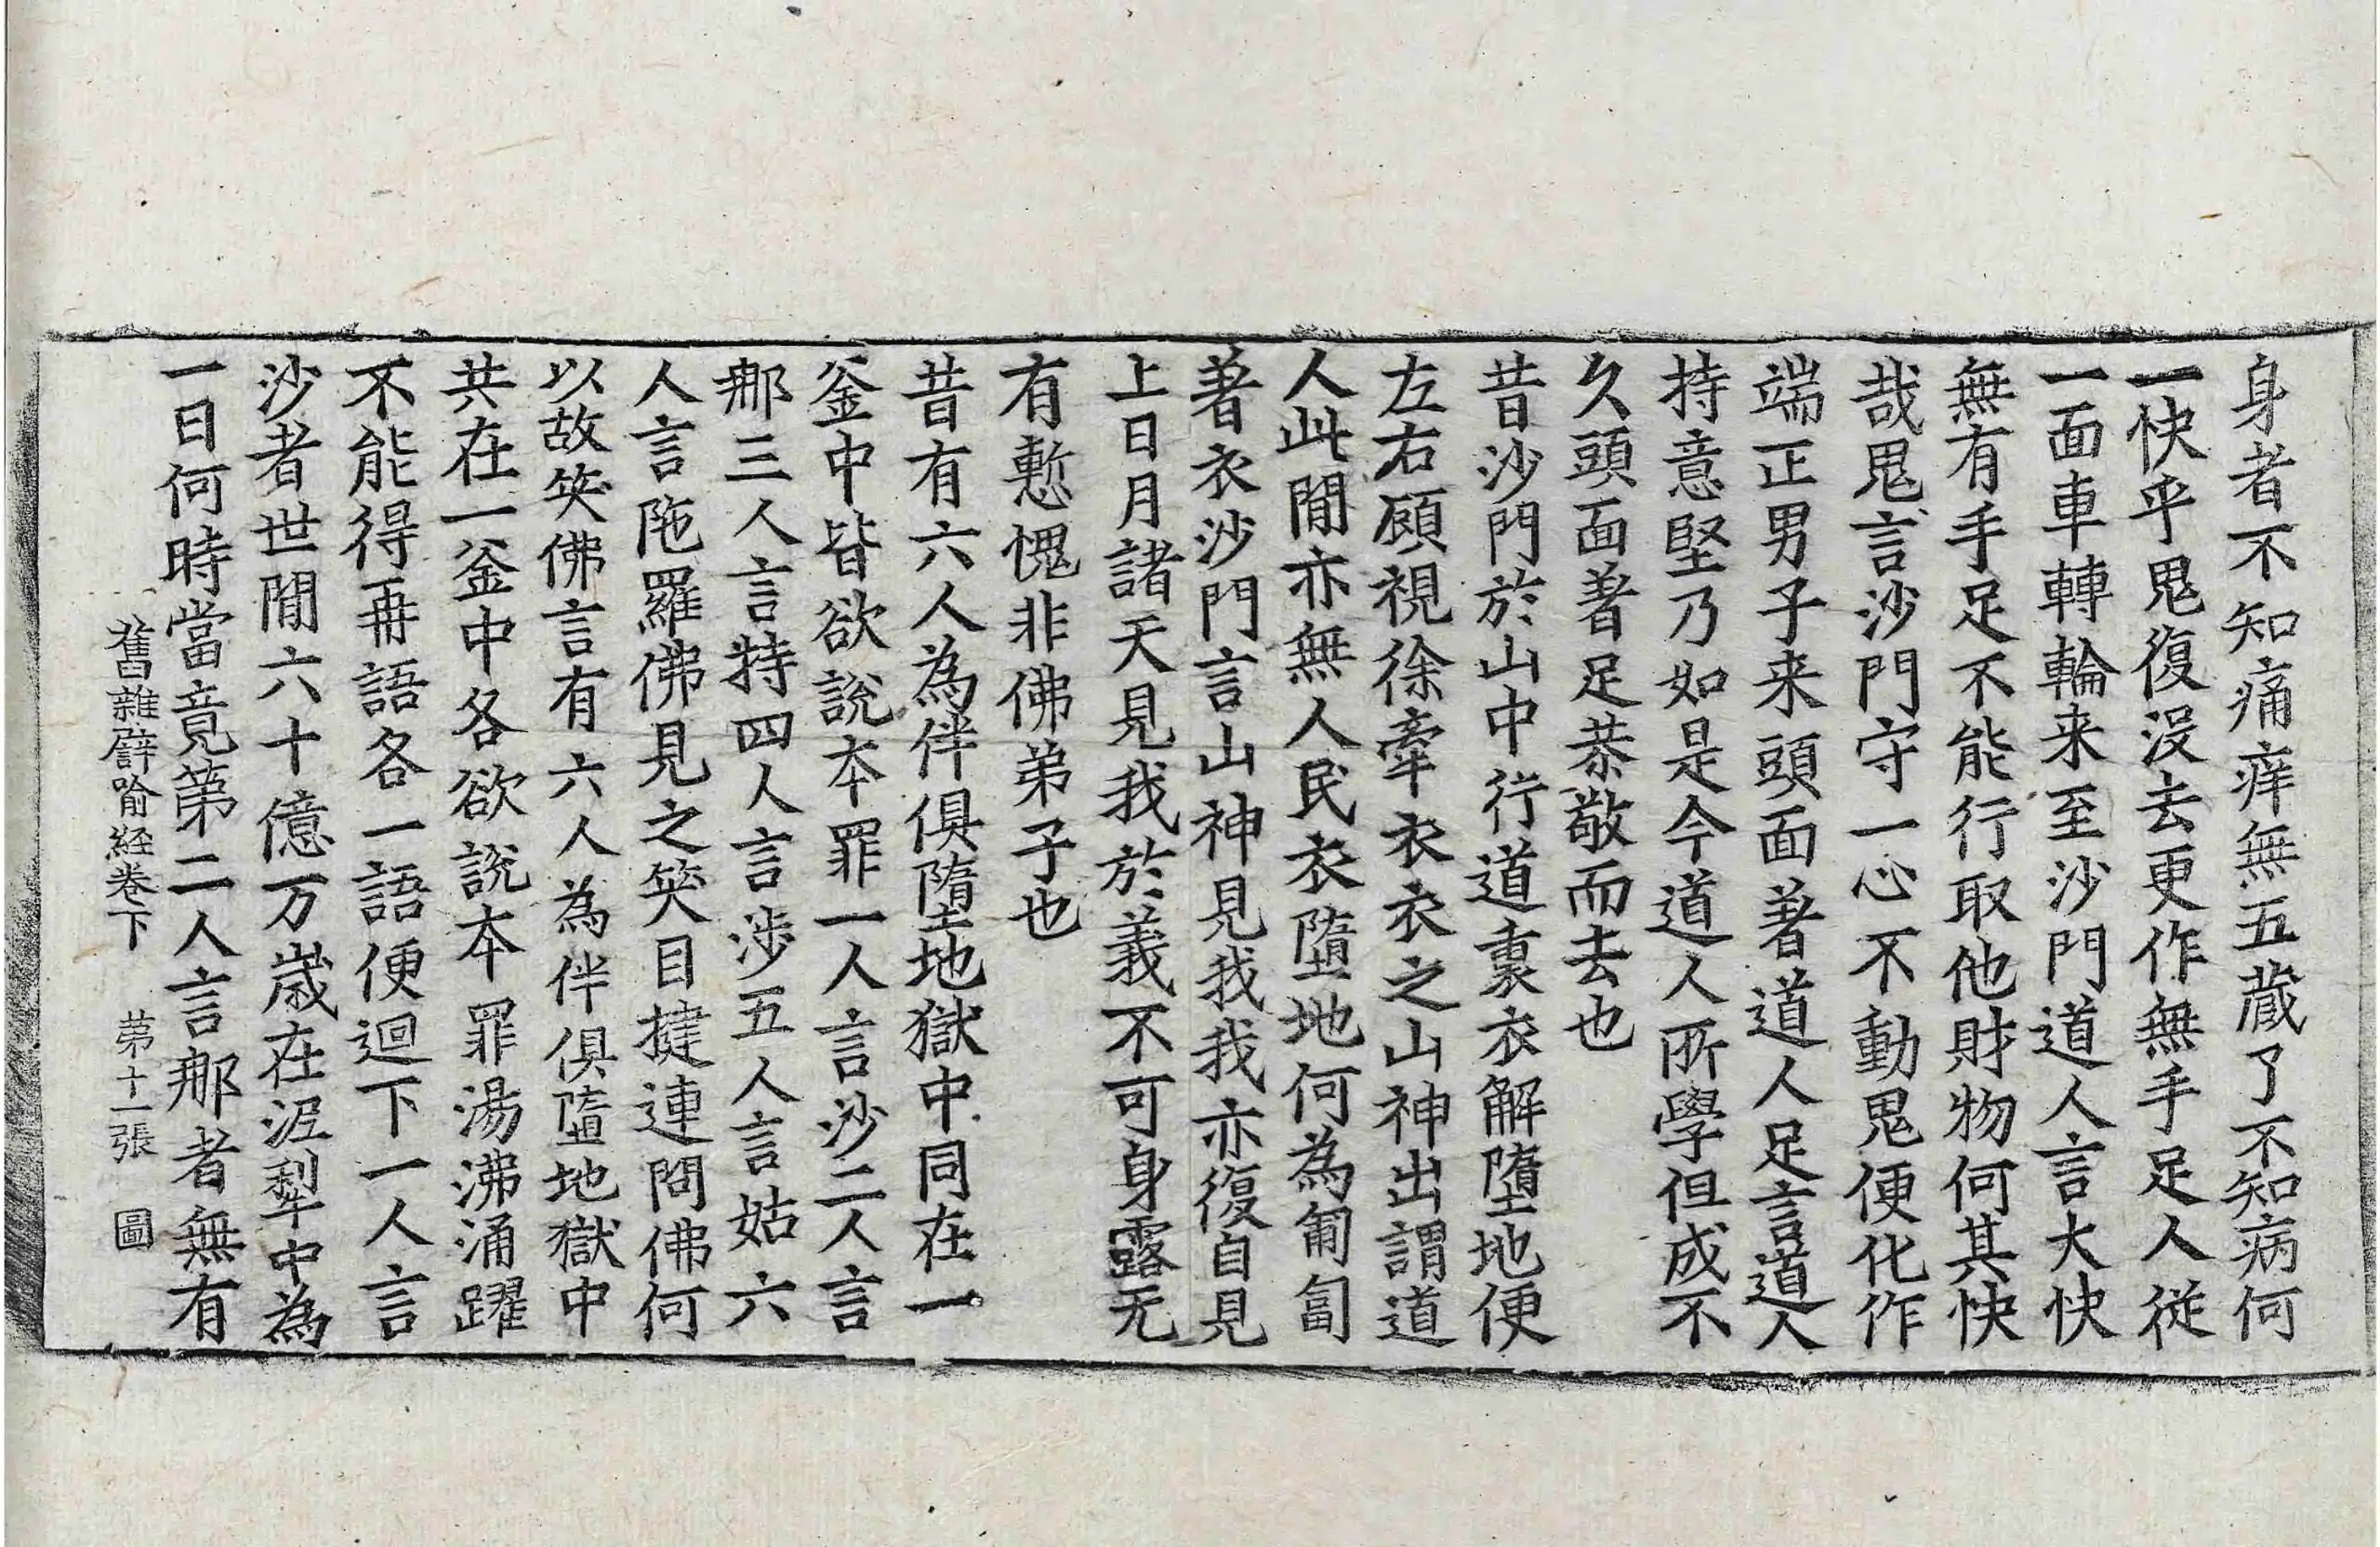 身者不知痛痒無五蔵了不知病何
一快乎鬼復没去更作無手足人従
一面車轉輪来至沙門道人言大快
無有手足不能行取他財物何其快
哉鬼言沙門守一心不動鬼便化作
端正男子来頭面著道人足言道人
持意堅乃如是今道人所學但成不
久頭面著足恭敬而去也
昔沙門於山中行道裏衣解墮地便
左右顧視徐牽衣衣之山神出謂道
人此間亦無人民衣墮地何為匍匐
著衣沙門言山神見我我亦復自見
上日月諸天見我於義不可身露无
有慙愧非佛弟子也
昔有六人為伴俱墮地獄中同在一
釜中皆欲説本罪一人言沙二人言
那三人言特四人言涉五人言姑六
人言陁羅佛見之笑目揵連問佛何
以故笑佛言有六人為伴俱墮地獄中
共在一釜中各欲説本罪湯沸涌躍
不能得再語各一語便迴下一人言
沙者世間六十億万歳在泥犁中為
一日何時當竟第二人言那者無有
舊雜譬喻経卷下 第十一張 圖